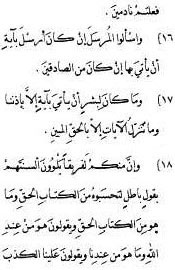 فعلتم نادمين .
(١٦) واسألوا المرسل إن كان أرسل بآية
أن يأتي بها إن كان من الصادقين .
(١٧) وما كان لبشر أن يأتي بآية إلا بإذننا
وما ننزل الآيات إلا بالحق المبين .
(١٨) وإن منكم لفريقا يلوون ألسنتهم
بقول باطل لتحسبوه من الكتاب الحق وما
هو من الكتاب الحق ويقولون هو من عند
الله وما هو من عندنا ويقولون علينا الكذب